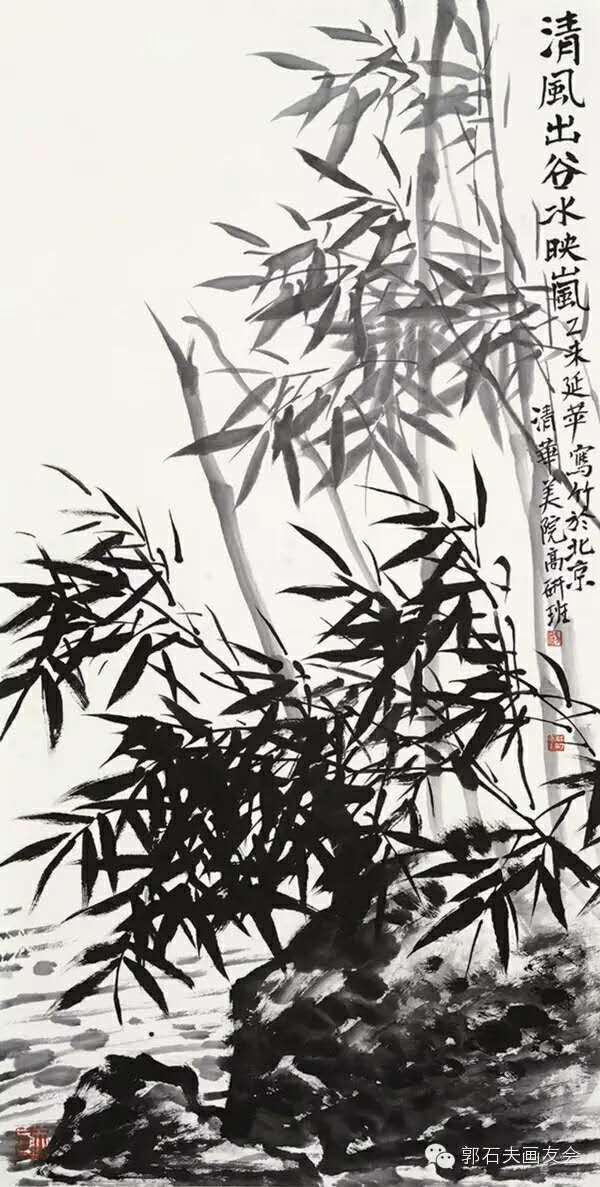 清風出谷水映嵐
乙未延苹寫竹於北京
清華美院高研班
郭石夫画友会